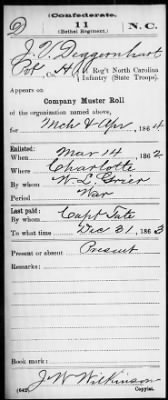 (Confederate.)
11 N. C.
(Bethel Regiment.)
J. V. Deggernhart
Co. H, 11 Reg't North Carolina
Infantry (State Troops).
Appears on
Company Muster Roll
of the organization named above,
for Mch & Apr, 1864
Enlisted:
When Mar 14, 1862
Where Charlotte
By whom W L Grier
Period War
Last paid:
By whom Capt Tate
To what time Dec 31, 1863
Present or absent Present
Remarks:
Book mark:
(642) J W Wilkinson
Copyist.